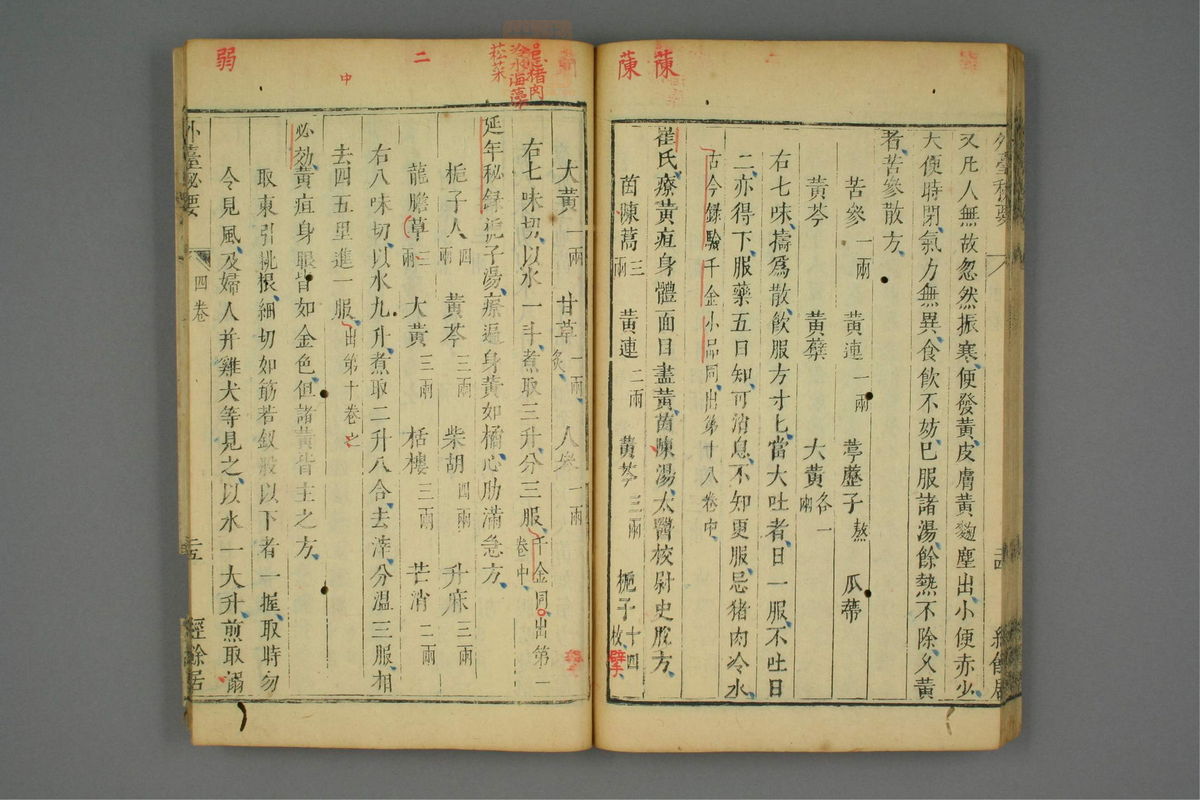 蔯
蔯
外臺秘要
又凡人無故忽然振寒便發黃皮膚黃麴塵出小便赤少
大便時閉氣力無異食飲不妨已服諸湯餘熱不除久黃
者苦參散方
苦參一兩 黃連一兩 葶藶子熬 瓜蒂
黃芩 黃蘗 大黃各一兩
右七味擣爲散飲服方寸匕當大吐者日一服不吐日
二亦得下服藥五日知可消息不知更服忌猪肉冷水
古今錄驗千金小品同出第十八卷中
崔氏療黃疸身體面目盡黃茵陳湯太醫校尉史脫方
茵陳蒿三兩 黃連二兩 黃芩三兩 梔子十四枚擘
大黃一兩 甘草一兩炙 人參一兩
右七味切以水一斗煮取三升分三服千金同出第一卷中
忌猪肉
冷水海藻
菘菜
延年秘錄梔子湯療遍身黃如橘心肋滿急方
梔子人四兩 黃芩三兩 柴胡四兩 升麻三兩
龍膽草三兩 大黃三兩 栝樓三兩 芒消二兩
右八味切以水九升煮取二升八合去滓分溫三服相
去四五里進一服出第十卷
二
中
必効黃疸身眼皆如金色但諸黃皆主之方
取東引桃根細切如筯若釵股以下者一握取時勿
令見風及婦人并雞犬等見之以水一大升煎取溺
弱
外臺秘要
四卷
二五
經餘居